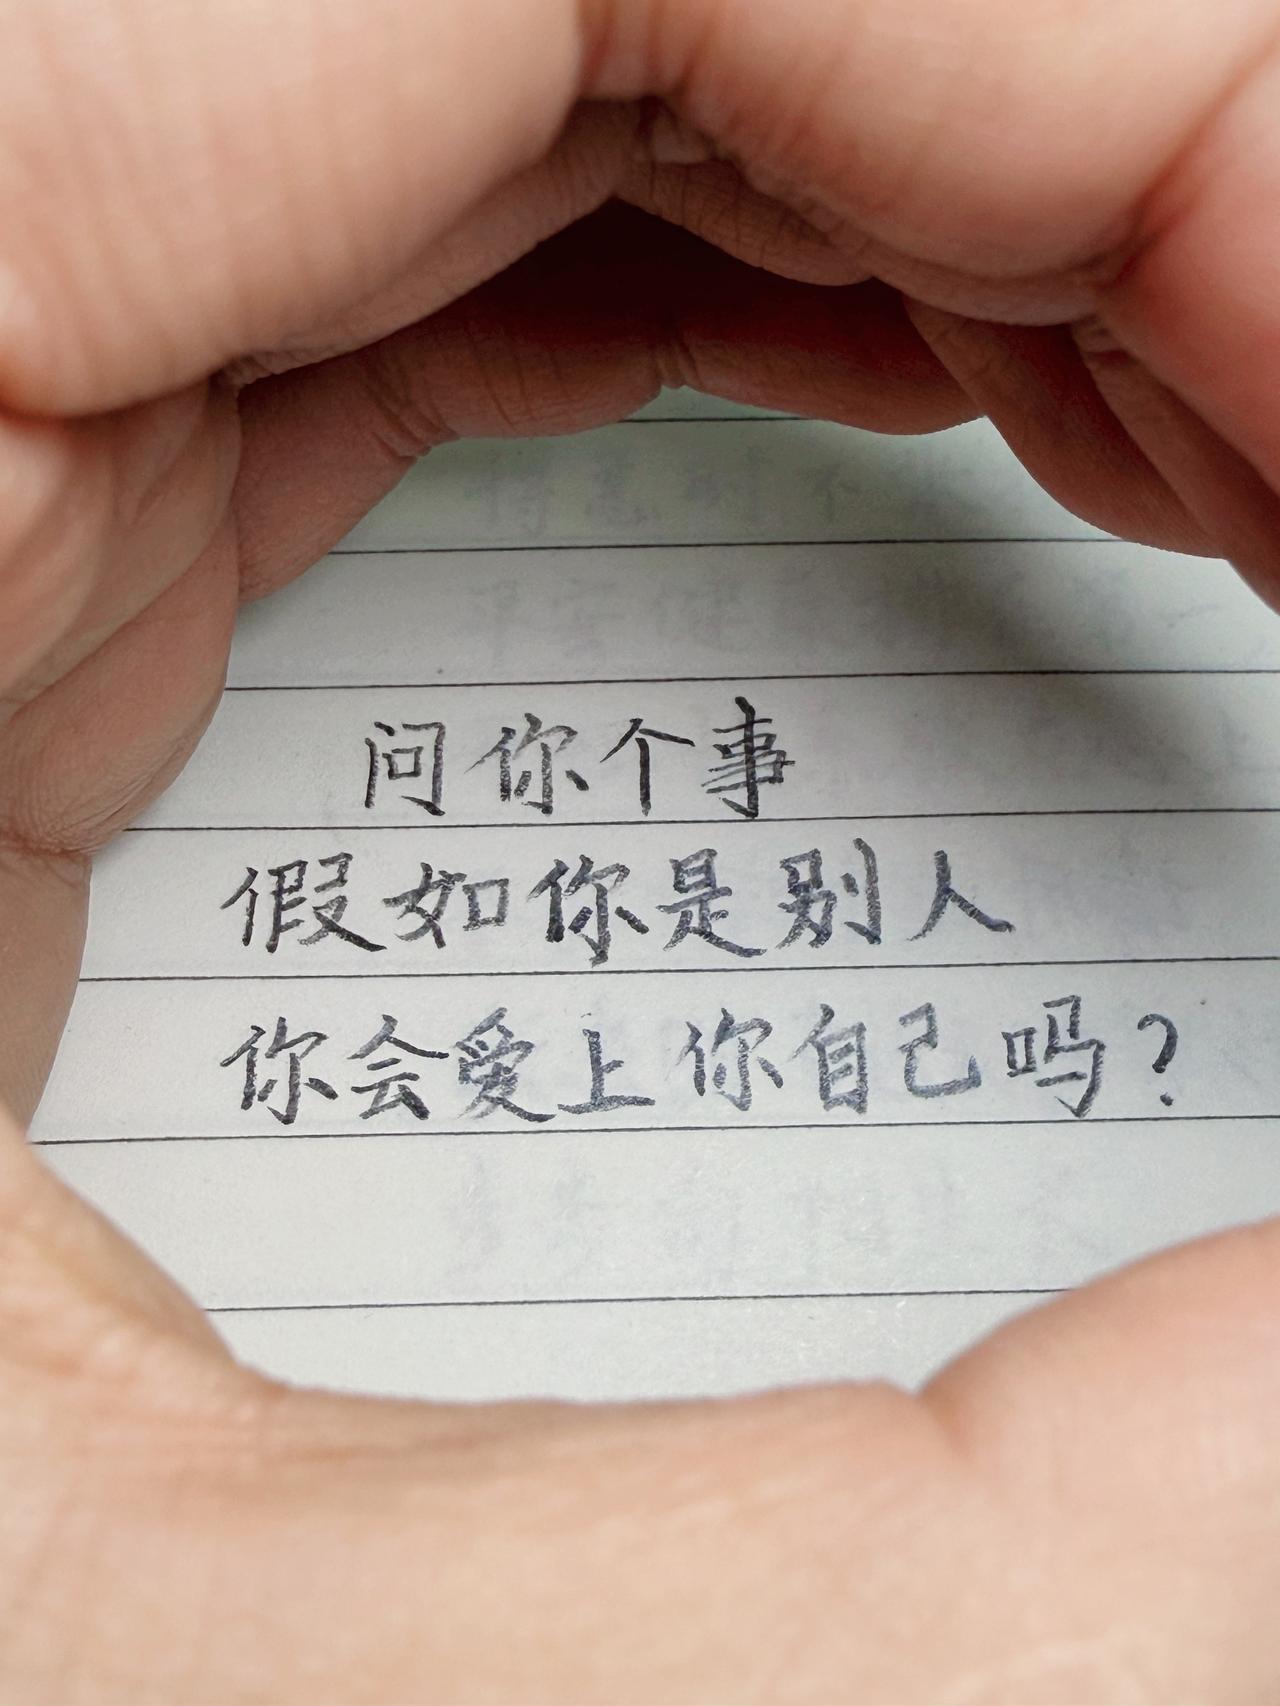 问你个事
假如你是别人
你会爱上你自己吗？